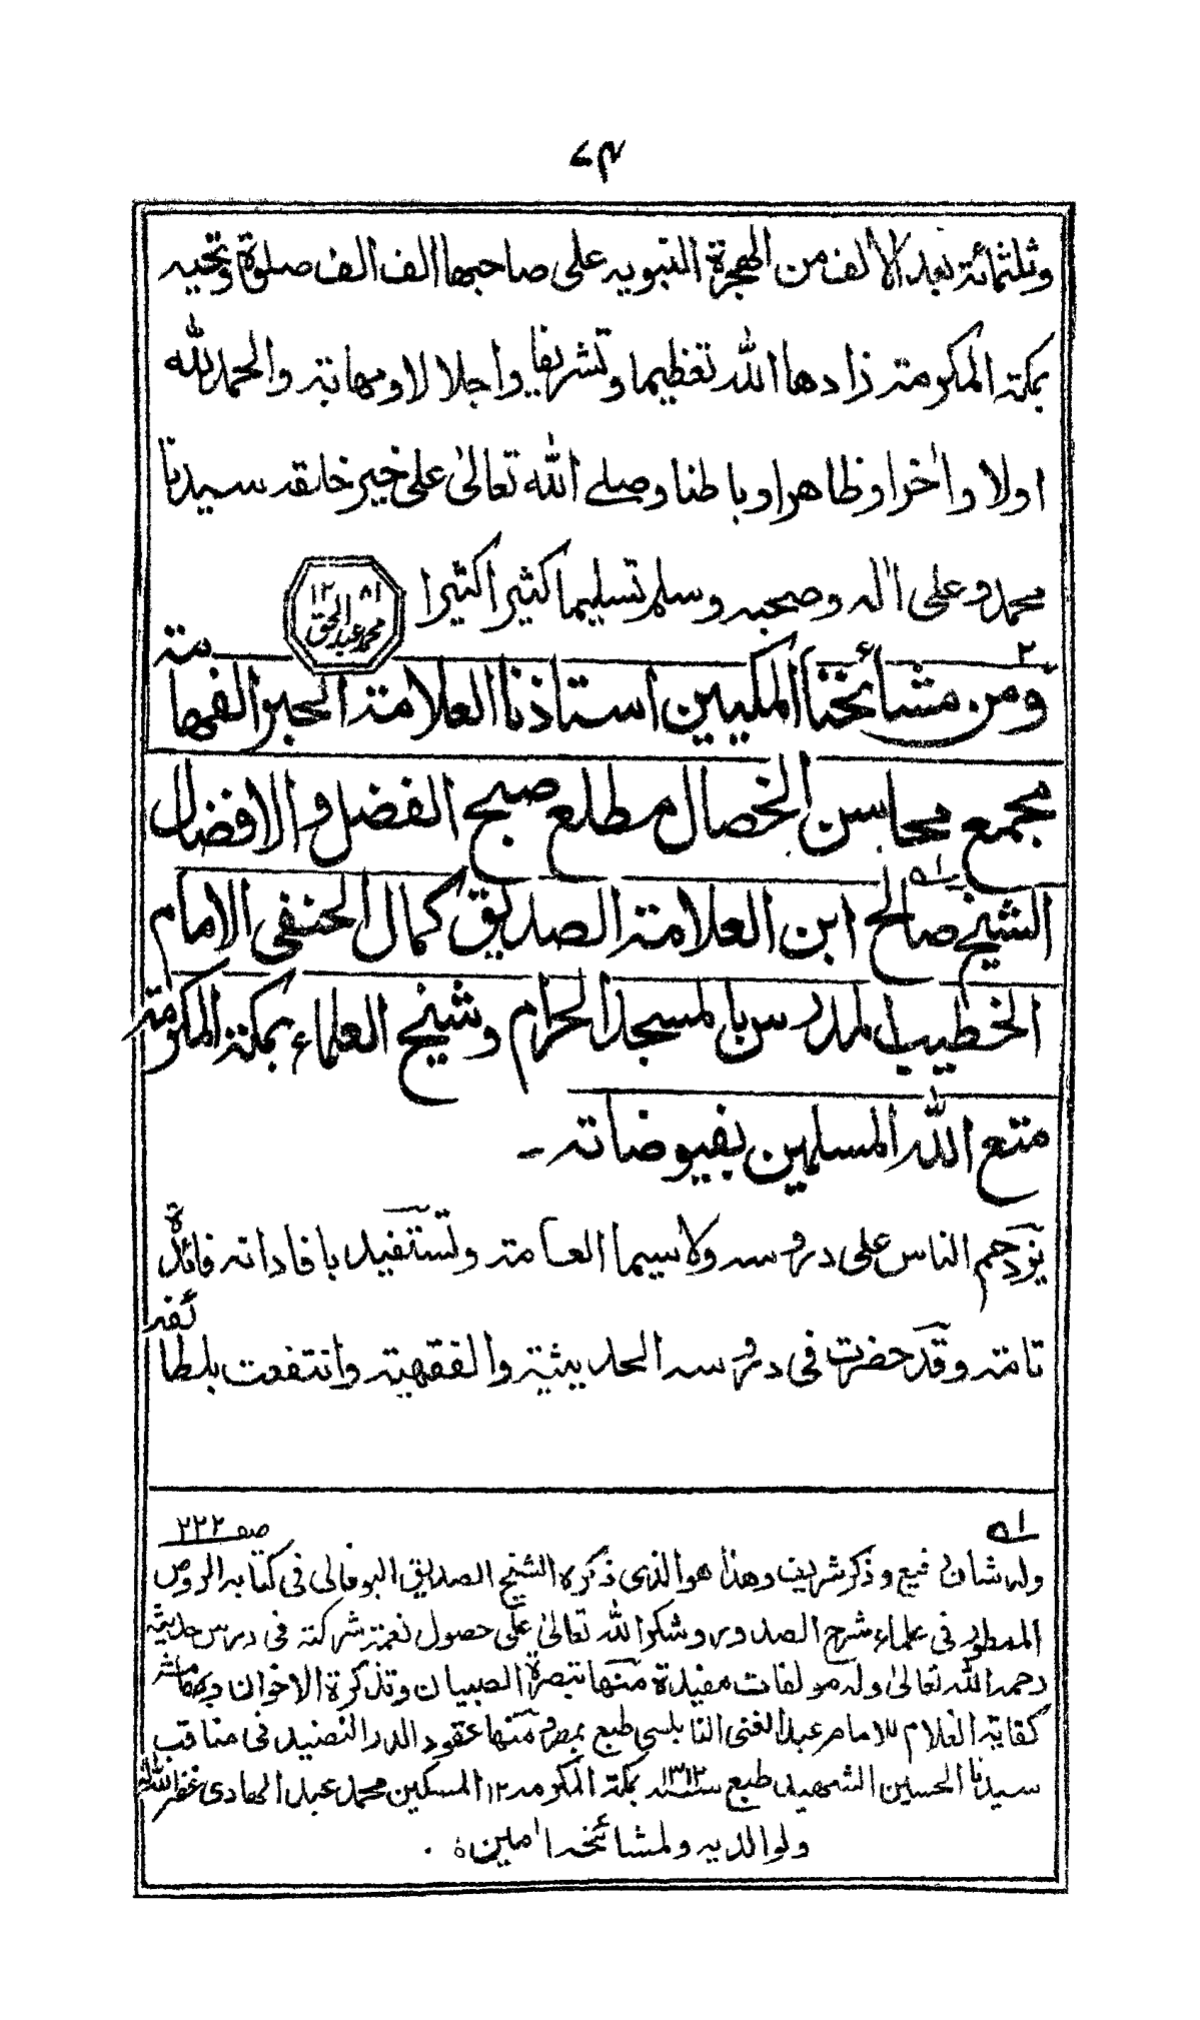 ٧٤
وثلثمائة بعد الالف من الهجرة النبويه على صاحبها الف الف صلوة وتحيه
بمكة المكرمة زادها الله تعظيما وتشريفا واجلالا ومهابة والحمد لله
اولا واٰخرا وظاهرا وباطنا وصلے الله تعالىٰ على خير خلقه سيدنا
محمد وعلى اٰله وصحبه وسلم تسليما كثيرا كثيرا
١٢٨١
محمد عبد الحق
٢
ومن مشائخنا المكيين استاذنا العلامة الحبر الفهامة
مجمع محاسن الخصال مطلع صبح الفضل والافضال
الشيخ صالح ابن العلامة الصديق كمال الحنفى الامام
الخطيب المدرس بالمسجد الحرام وشيخ العلماء بمكة المكرمة
متع الله المسلمين بفيوضاته ـ
يزدحم الناس على دروسه ولاسيما العامة وتستفيد بافاداته فائدة
تامة وقد حضرت فى دروسه الحديثية والفقهية وانتفعت بلطائفه
له ١ صفه ٢٢٢
وله شان فيع وذكر شريف وهذا هو الذى ذكره الشيخ الصديق البوفالى فى كتابه الروض
الممطور فى علماء شرح الصدور وشكر الله تعالىٰ على حصول نعمة شركته فى درس حديثه
رحمه الله تعالىٰ وله مولفات مفيدة منها تبصرة الصبيان وتذكرة الاخوان
كفاية الغلام للامام عبد الغنى النابلسى طبع بمصر ومنها عقود الدرر النضيد فى مناقب
سيدنا الحسين الشهيد طبع سنة ١٣١٢ه بمكة المكرمه ١٢ المسكين محمد عبد الهادى غفر الله له
ولوالديه ولمشائخه اٰمين ۀ .